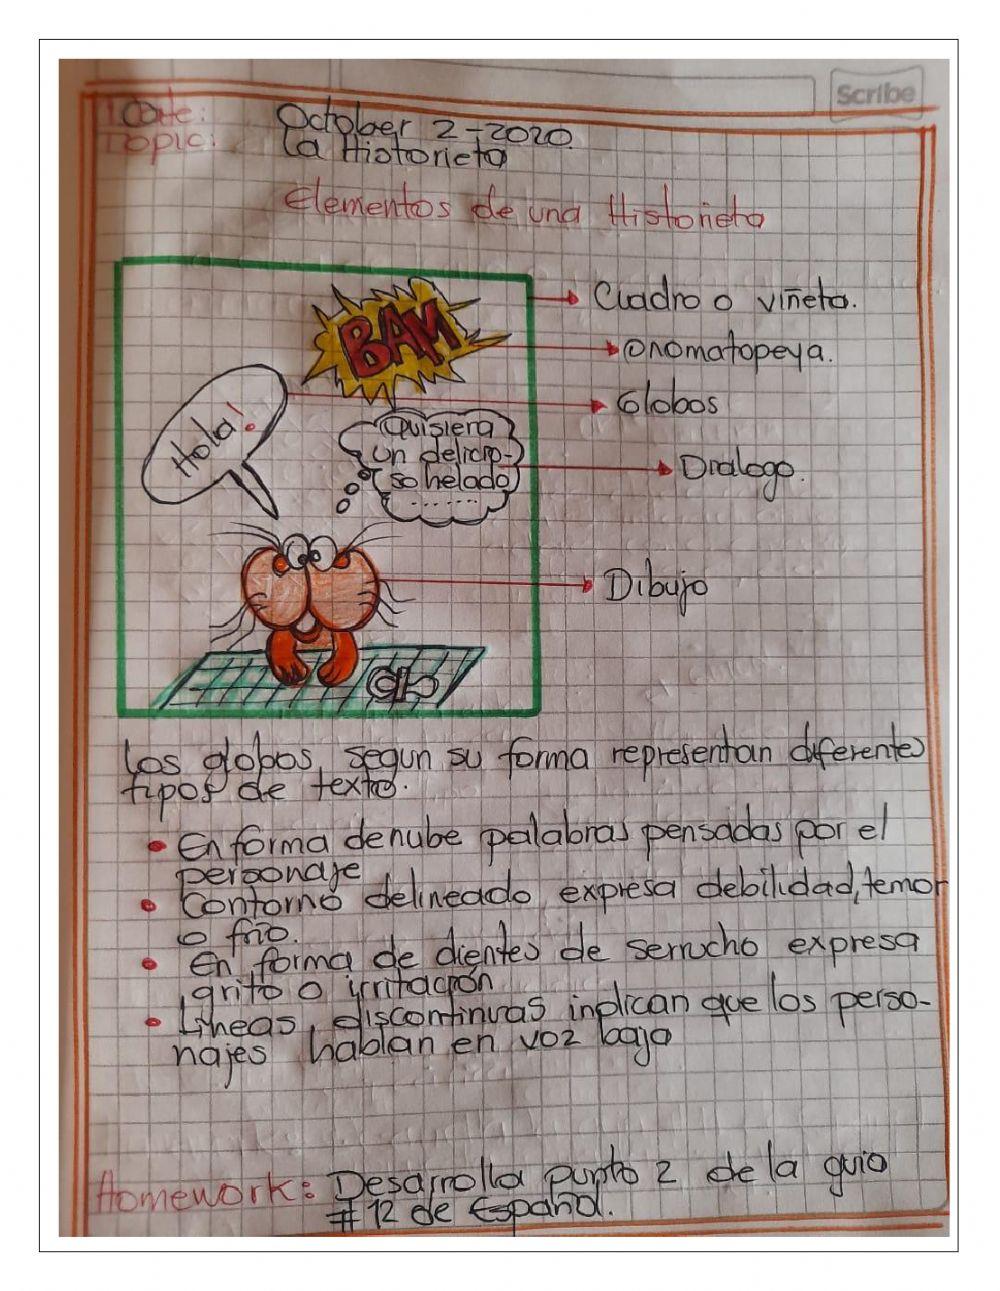 Scribe
Date: October 2-2020.
Topic: La Historieta
Elementos de una Historieta
Cuadro o viñeta.
BAM
Onomatopeya.
Globos
Hola!
Quisiera
un delicio-
so helado
.......
Dialogo.
Dibujo
Los globos, segun su forma representan diferentes
tipos de texto.
• En forma de nube palabras pensadas por el
personaje
• Contorno delineado expresa debilidad, temor
o frio.
• En forma de dientes de serrucho expresa
grito o irritación
• Lineas, discontinuas inplican que los perso-
najes hablan en voz baja
Homework: Desarrolla punto 2 de la guia
#12 de Español.